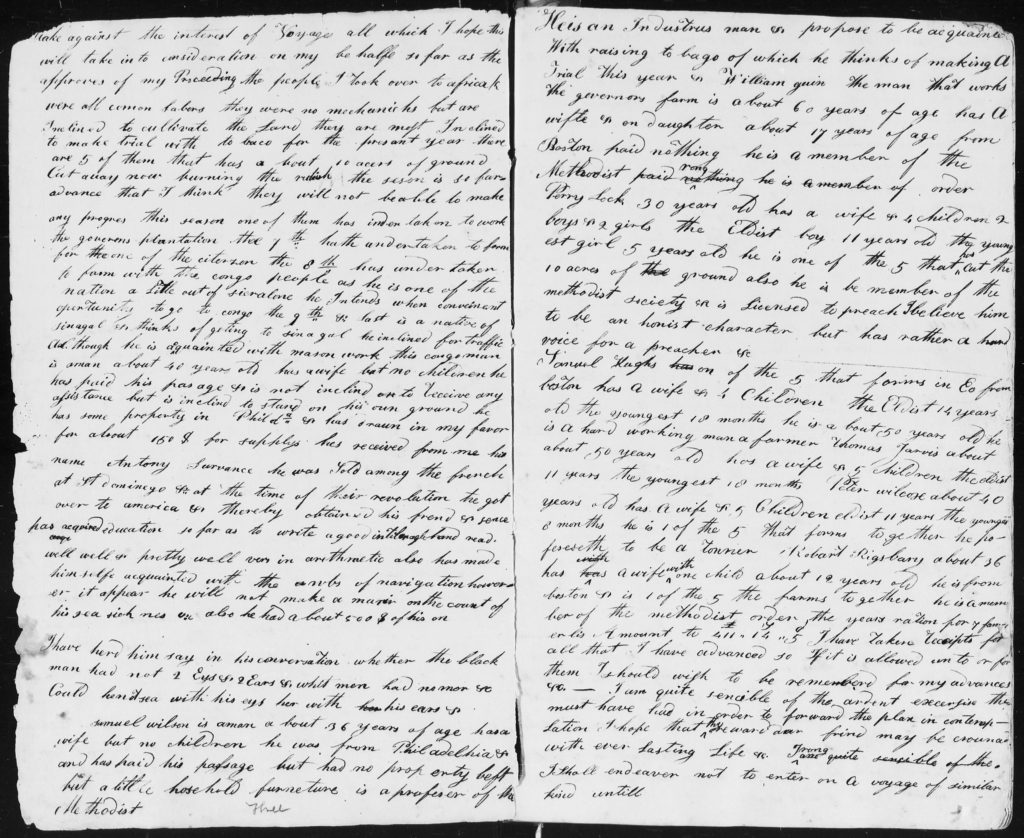 take against the interest of Voyage all which I hope this
will take into consideration on my be halfe so far as the
approves of my Proceeding the people I took over to africak
were all comon labors they were no mechanichs but are
Inclined to cultivate the Land they are most Inclined
to make trial with to baco for the presant year there
are 5 of them that has a bout 10 acers of ground
Cut away now burning the the seson is so far
advance that I think they will not beable to make
any progres this season one of them has under taken to work
the governs plantation the 7th hath undertaken to farm
for the one of the citerzen the 8th has under taken
to farm with the congo people as he is one of the
nation a little out of sieralone he Intends when conveinant
oportunity to go to congo the 9th & last is a native of
sinagal & thinks of goting to sinagal he inclined for traffic
Al though he is Equainted with mason work this congo man
is aman about 40 year old has awife but no children he
has paid his pasage & is not inclind on to Receive any
assistance but is inclind to stand on his oun ground he
has some property in Phild & has draun in my favor
for about 150 $ for supplys has received from me his
name Antony Survance he was Sold among the french
at St dominego & at the time of their revolution he got
over to america & thereby obtained his frend & sence
has acquired education so far as to write a good and read
well well & pretty well vers in arithmetic also has made
him selfe acquainted with the of navigation howev-
er it appear he will not make a marin on the count of
his sea sick nes & also he had a bout 500 $ of his on
I have herd him say in his conversation whether the black
man had not 2 Eys & 2 Ears & whit men had no mor &
Could hend sea with his eys her with his ears &
samuel wilson is aman a bout 36 years of age has a
wife but no children he was from Philadelhia &
and has paid his passage but had no property left
but a little hosehold furneture is a profeser of the
Methodist
Heis an Industrus man & propose to be acquainted
With raising to bago of which he thinks of making A
Trial this year & William guin the man that works
the governors farm is about 60 years of age has A
wifte & on daughter about 17 years of age from
Boston paid nothing he is a member of the
Methodist paid rong nothing he is a member of order
Perry Lock 30 years old has a wife & 4 children 2
boys & 2 girls the Eldist boy 11 years old the young
est girl 5 years old he is one of the 5 that has cut the
10 acres of the ground also he is be member of the
methodist society & is Licensed to preach I believe him
to be an honist character but has rather a hard
voice for a preacher &c
Samuel Hughs has on of the 5 that forms in Co from
boston has a wife & 4 Children the Eldist 14 years
old the youngest 18 months he is a bout 50 years old he
is a hard working man a farmer Thomas Jarvis about
about 50 years old has a wife & 5 children the eldist
11 years the youngest 18 months Peter wilcox about 40
years old has a wife & 5 Children eldist 11 years the youngest
8 months he is 1 of the 5 that forms to gether he po-
fereseth to be a Tonner Robart Rigsbary about 36
has a wife with one child about 12 years old he is from
boston & is 1 of the 5 the farms together he is a mem
ber of the methodist order the years ration for y fam
erlis Amount to 411 " 14 " 5 I have Taken Receipts for
all that I have advanced so If it is allowed un to or for
them I should wish to be remembered for my advances
&c — I am quite sencible of the ardent excersise the
must have had in order to forward the plan in contemp-
lation I hope that thy reward dear frind may be crouned
with ever lasting Life & I rong am quite sencible of the
I shall endeaver not to enter on a voyage of similar
kind untill